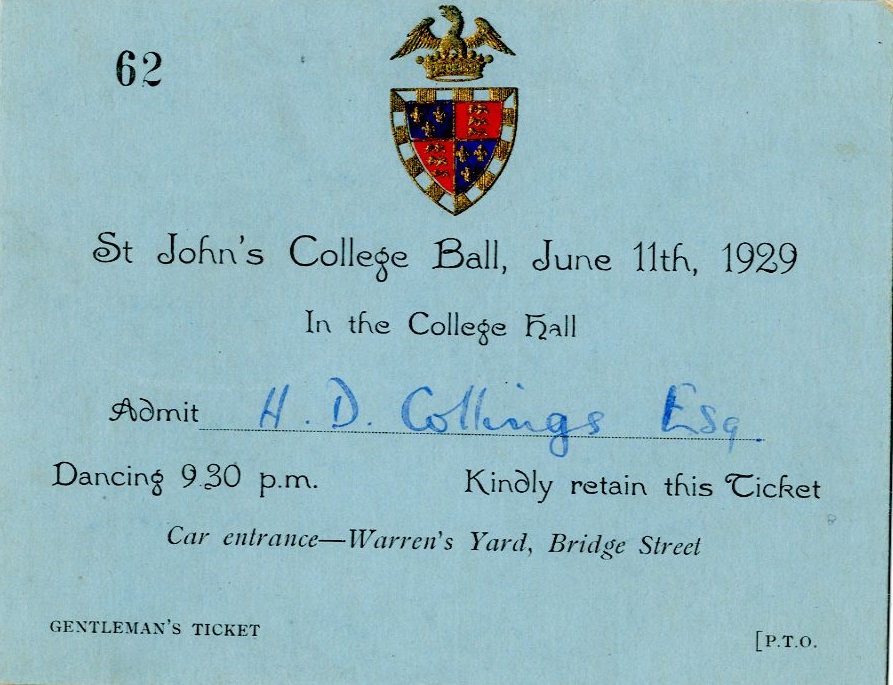 62
St John's College Ball, June 11th, 1929
In the College Hall
Admit H. D. Collings Esq.
Dancing 9.30 p.m. Kindly retain this Ticket
Car entrance—Warren's Yard, Bridge Street
GENTLEMAN'S TICKET [P.T.O.